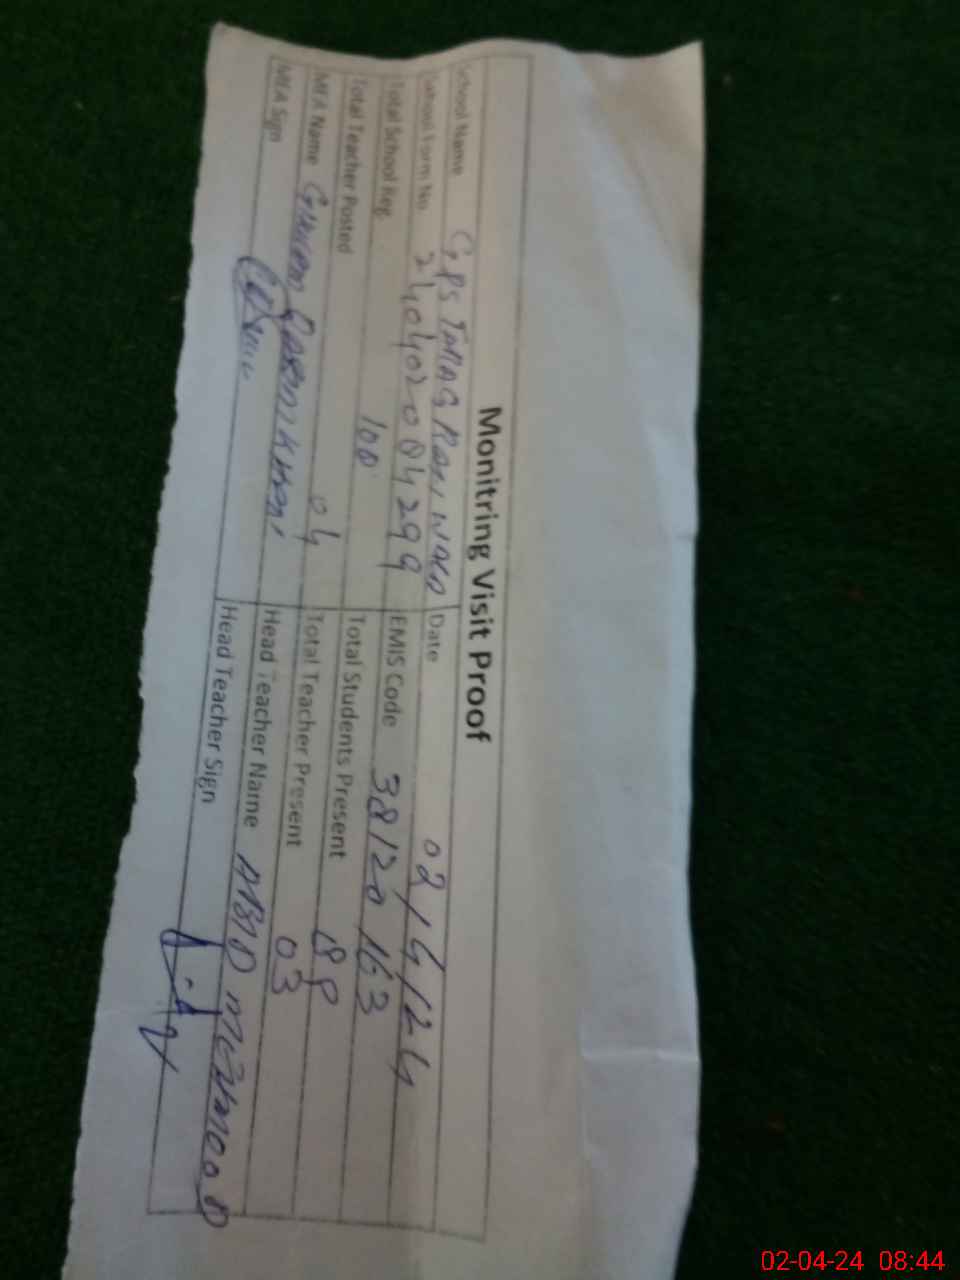 Monitring Visit Proof
School Name GPS Date 02/4/24
School Form No 240402004299 EMIS Code 38120163
Total School Reg 100 Total Students Present
Total Teacher Posted 04 Total Teacher Present 03
MEA Name Head Teacher Name ABID MEHMOOD
MEA Sign Head Teacher Sign
02-04-24 08:44